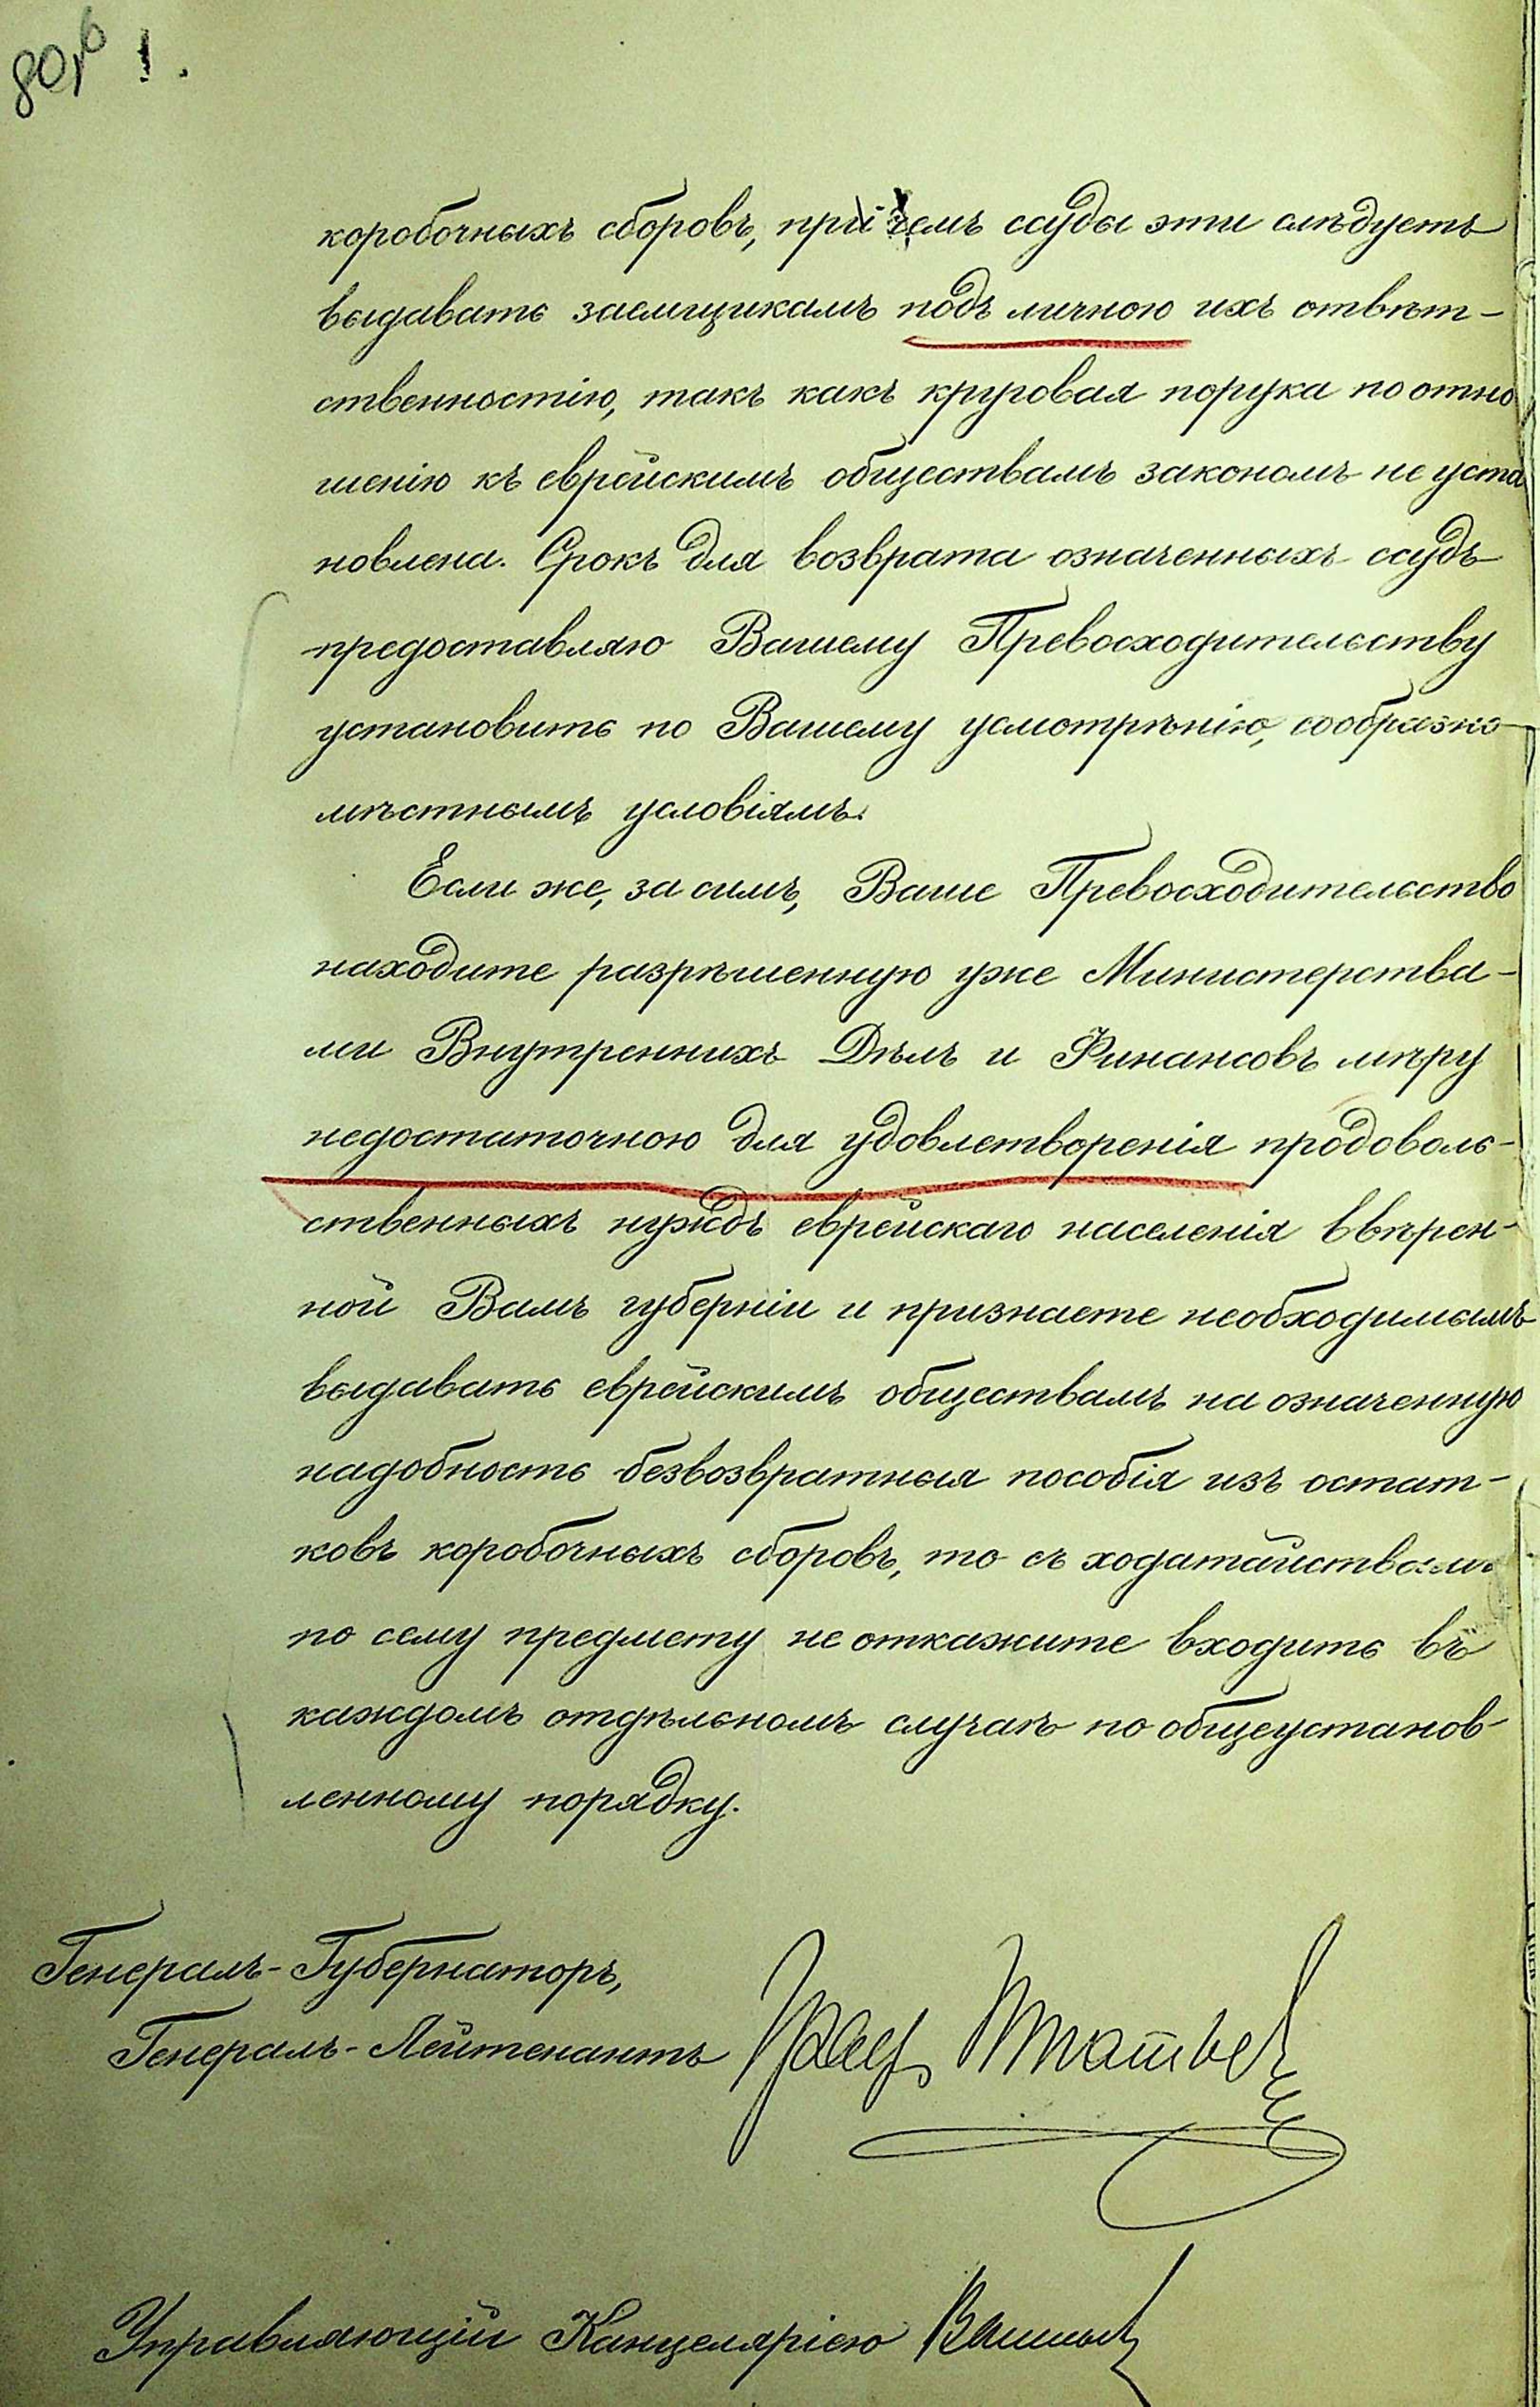 80,б 1.
коробочныхъ сборовъ, при чемъ ссуды эти слѣдуетъ
выдавать заемщикамъ подъ личною ихъ отвѣт-
ственностію, такъ какъ круговая порука по отно
шенію къ еврейскимъ обществамъ закономъ не уста
новлена. Срокъ для возврата означенныхъ ссудъ
предоставляю Вашему Превосходительству
установить по Вашему усмотрѣнію, сообразно
мѣстнымъ условіямъ.
Если же, за симъ, Ваше Превосходительство
находите разрѣшенную уже Министерства-
ми Внутреннихъ Дѣлъ и Финансовъ мѣру
недостаточною для удовлетворенія продоволь-
ственныхъ нуждъ еврейскаго населенія ввѣрен-
ной Вамъ губерніи и признаете необходимымъ
выдавать еврейскимъ обществамъ на означенную
надобность безвозвратныя пособія изъ остат-
ковъ коробочныхъ сборовъ, то съ ходатайствами
по сему предмету не откажите входить въ
каждомъ отдѣльномъ случаѣ по общеустанов-
ленному порядку.
Генералъ-Губернаторъ,
Генералъ-Лейтенантъ Графъ Игнатьев
Управляющій Канцеляріею